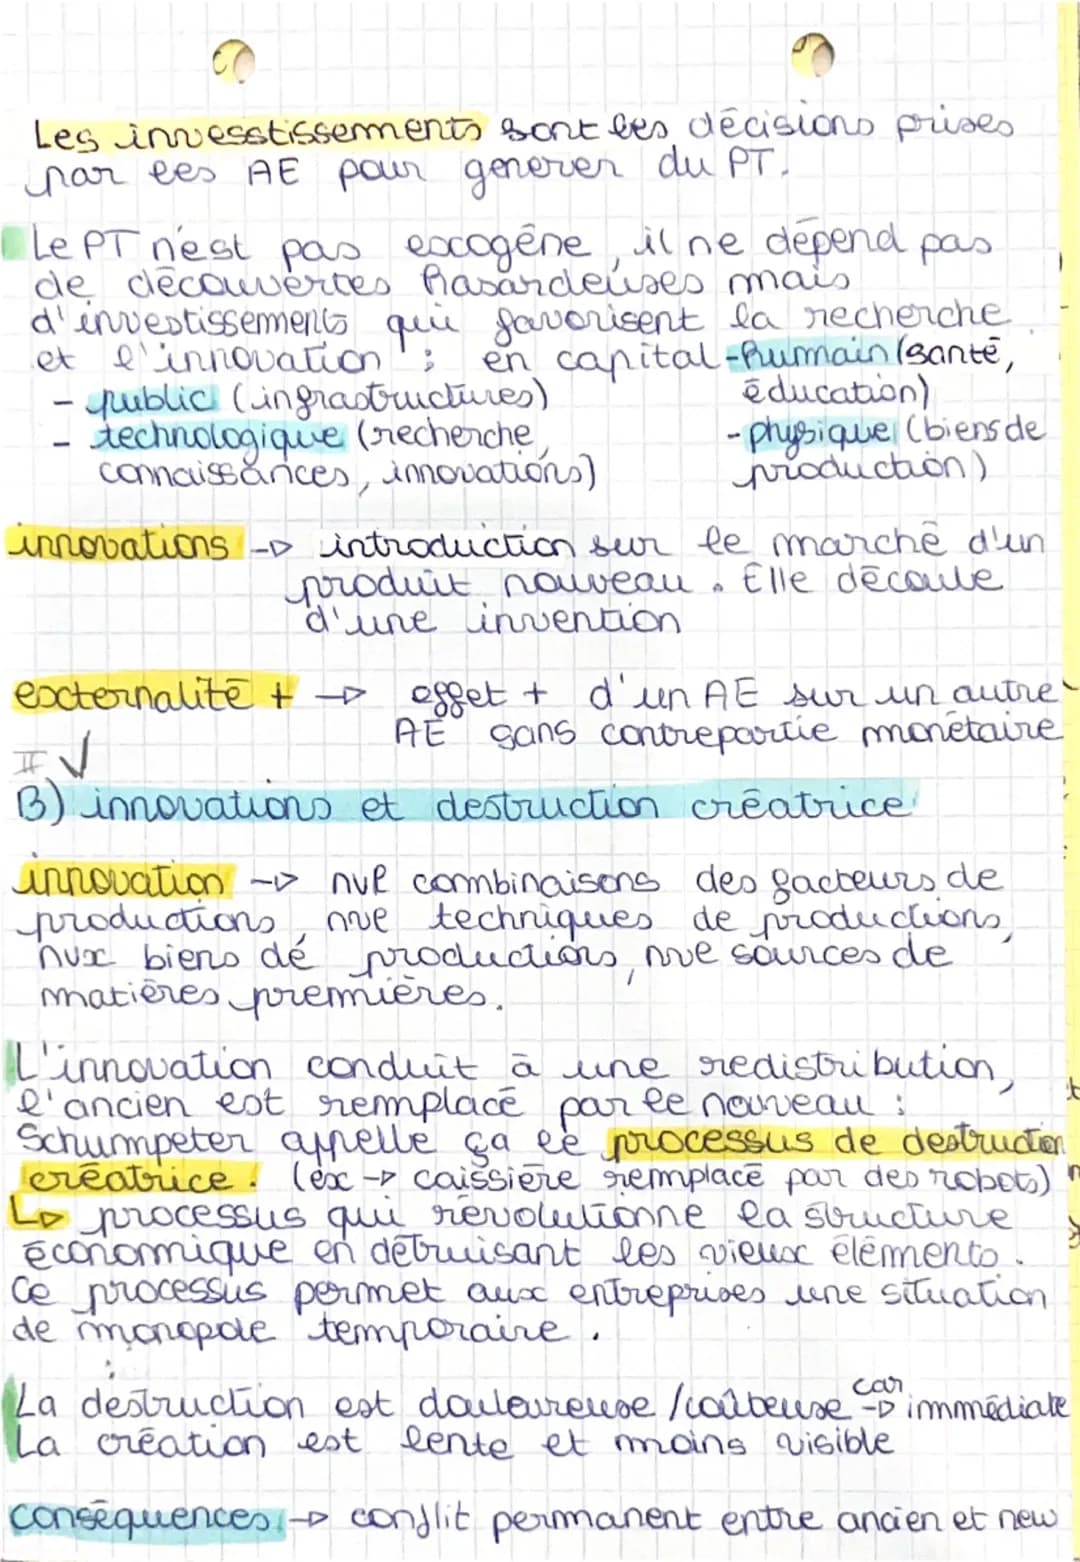 Les invesstissements sont les décisions prises
par les AE pour generer du PT.
Le PT n'est pas exogène, il ne dépend pas
de découvertes hasardeuses mais
d'investissements qui favorisent la recherche
et l'innovation : en capital - humain (santé,
éducation)
- public (infrastructures)
- technologique (recherche,
connaissances, innovations)
- physique (biens de
production)
innovations -> introduction sur le marché d'un
produit nouveau. Elle découle
d'une invention
externalité + -> effet + d'un AE sur un autre
AE sans contrepartie monétaire
II ✓
B) innovations et destruction créatrice
innovation -> nvl combinaisons des facteurs de
productions, nve techniques de productions,
nvx biens de productions, nve sources de
matières premières.
L'innovation conduit à une redistribution,
l'ancien est remplacé par le nouveau :
Schumpeter appelle ça le processus de destruction
créatrice. (ex -> caissière remplacé par des robots)
↳ processus qui révolutionne la structure
économique en détruisant les vieux éléments.
Ce processus permet aux entreprises une situation
de monopole temporaire.
La destruction est douloureuse / coûteuse -> car immédiate
La création est lente et moins visible
conséquences -> conflit permanent entre ancien et new